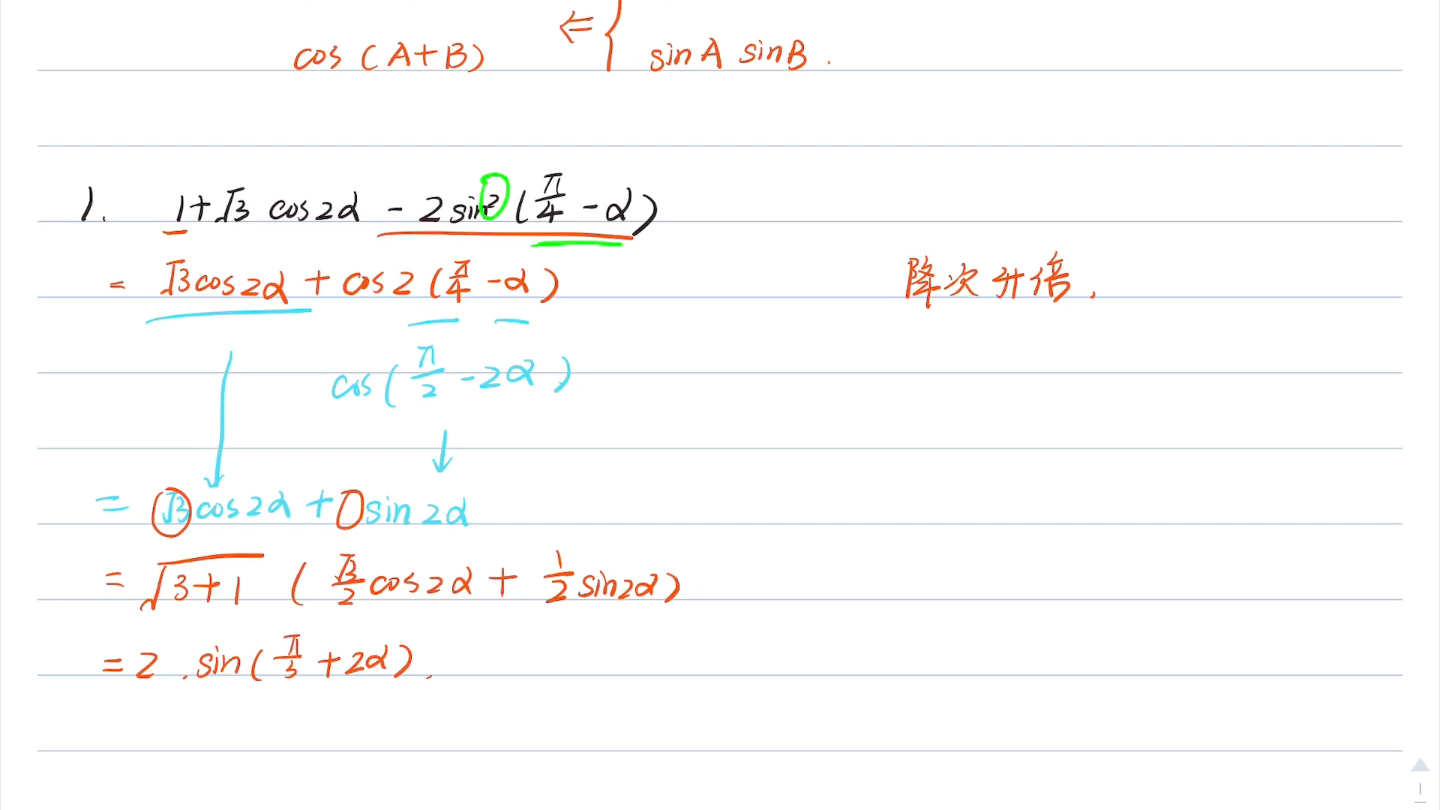 cos (A+B) ⇐ { sinA sinB .
1. 1+√3 cos2α - 2sin²(π/4 -α)
= √3cos2α + cos2(π/4 -α)
降次升倍.
cos(π/2 -2α)
= √3cos2α + sin2α
= √3+1 (√3/2 cos2α + 1/2 sin2α)
= 2 . sin(π/3 +2α).
1